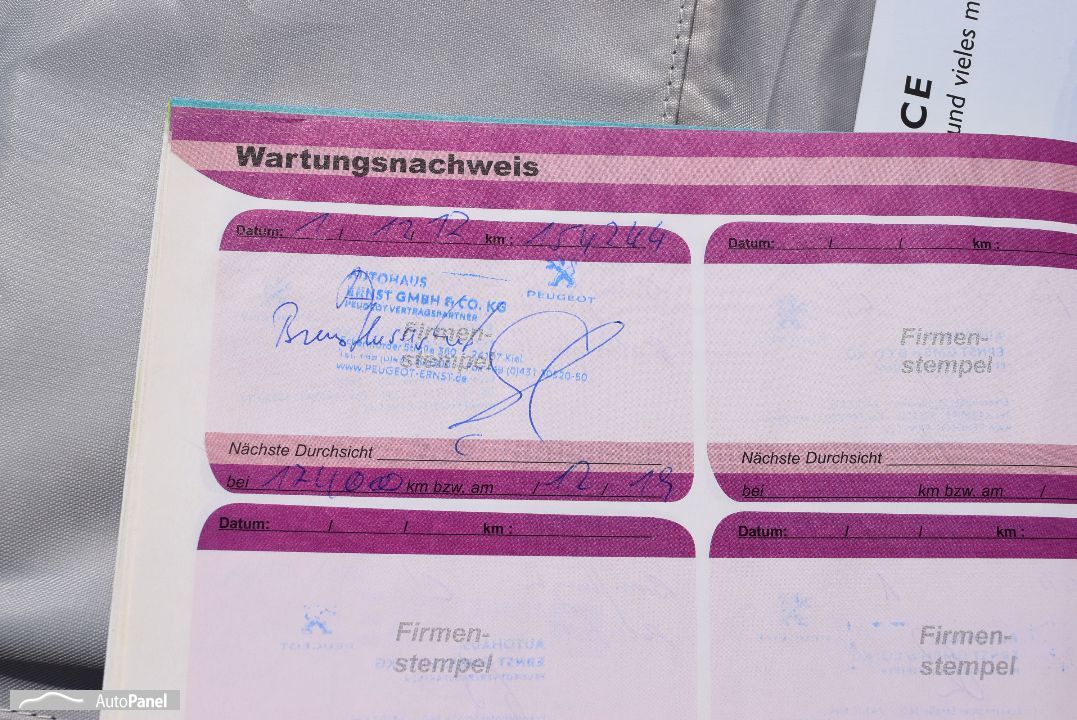 CE
und vieles m
Wartungsnachweis
Datum: 1 / 12/17 km : 154244
AUTOHAUS
ERNST GMBH & CO. KG
PEUGEOT VERTRAGSPARTNER
PEUGEOT
Firmen-
stempel
24157 Kiel
www.PEUGEOT-ERNST.de
Nächste Durchsicht
bei 174000 km bzw. am / 12 / 19
Datum: / / km :
Firmen-
stempel
Nächste Durchsicht
bei km bzw. am /
Datum: / / km :
Firmen-
stempel
Datum: / / km :
Firmen-
stempel
AutoPanel